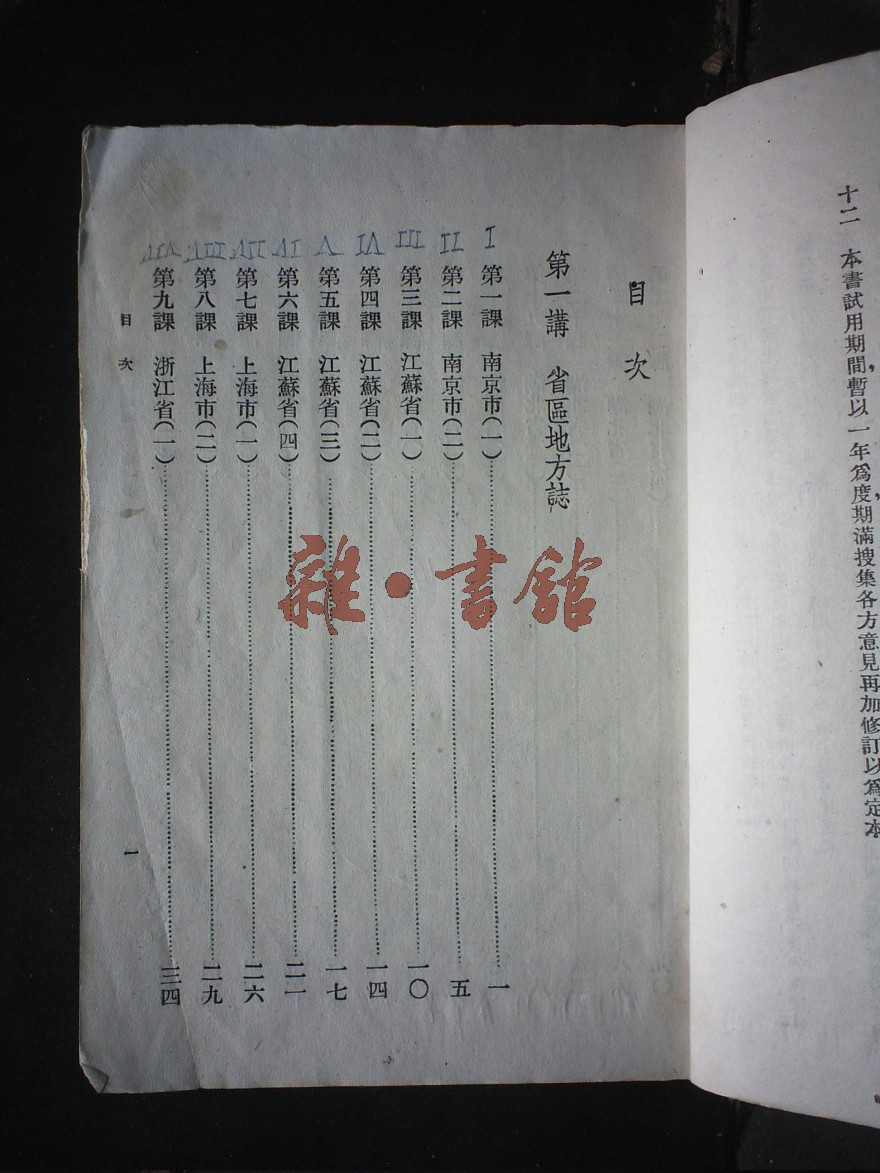 十二　本書試用期間，暫以一年爲度，期滿搜集各方意見再加修訂以爲定本
目次
第一講　省區地方誌
I
第一課　南京市(一)……一
II
第二課　南京市(二)……五
III
第三課　江蘇省(一)……一〇
第四課　江蘇省(二)……一四
第五課　江蘇省(三)……一七
第六課　江蘇省(四)……二一
第七課　上海市(一)……二六
第八課　上海市(二)……二九
第九課　浙江省(一)……三四
目次
一
雜·書館